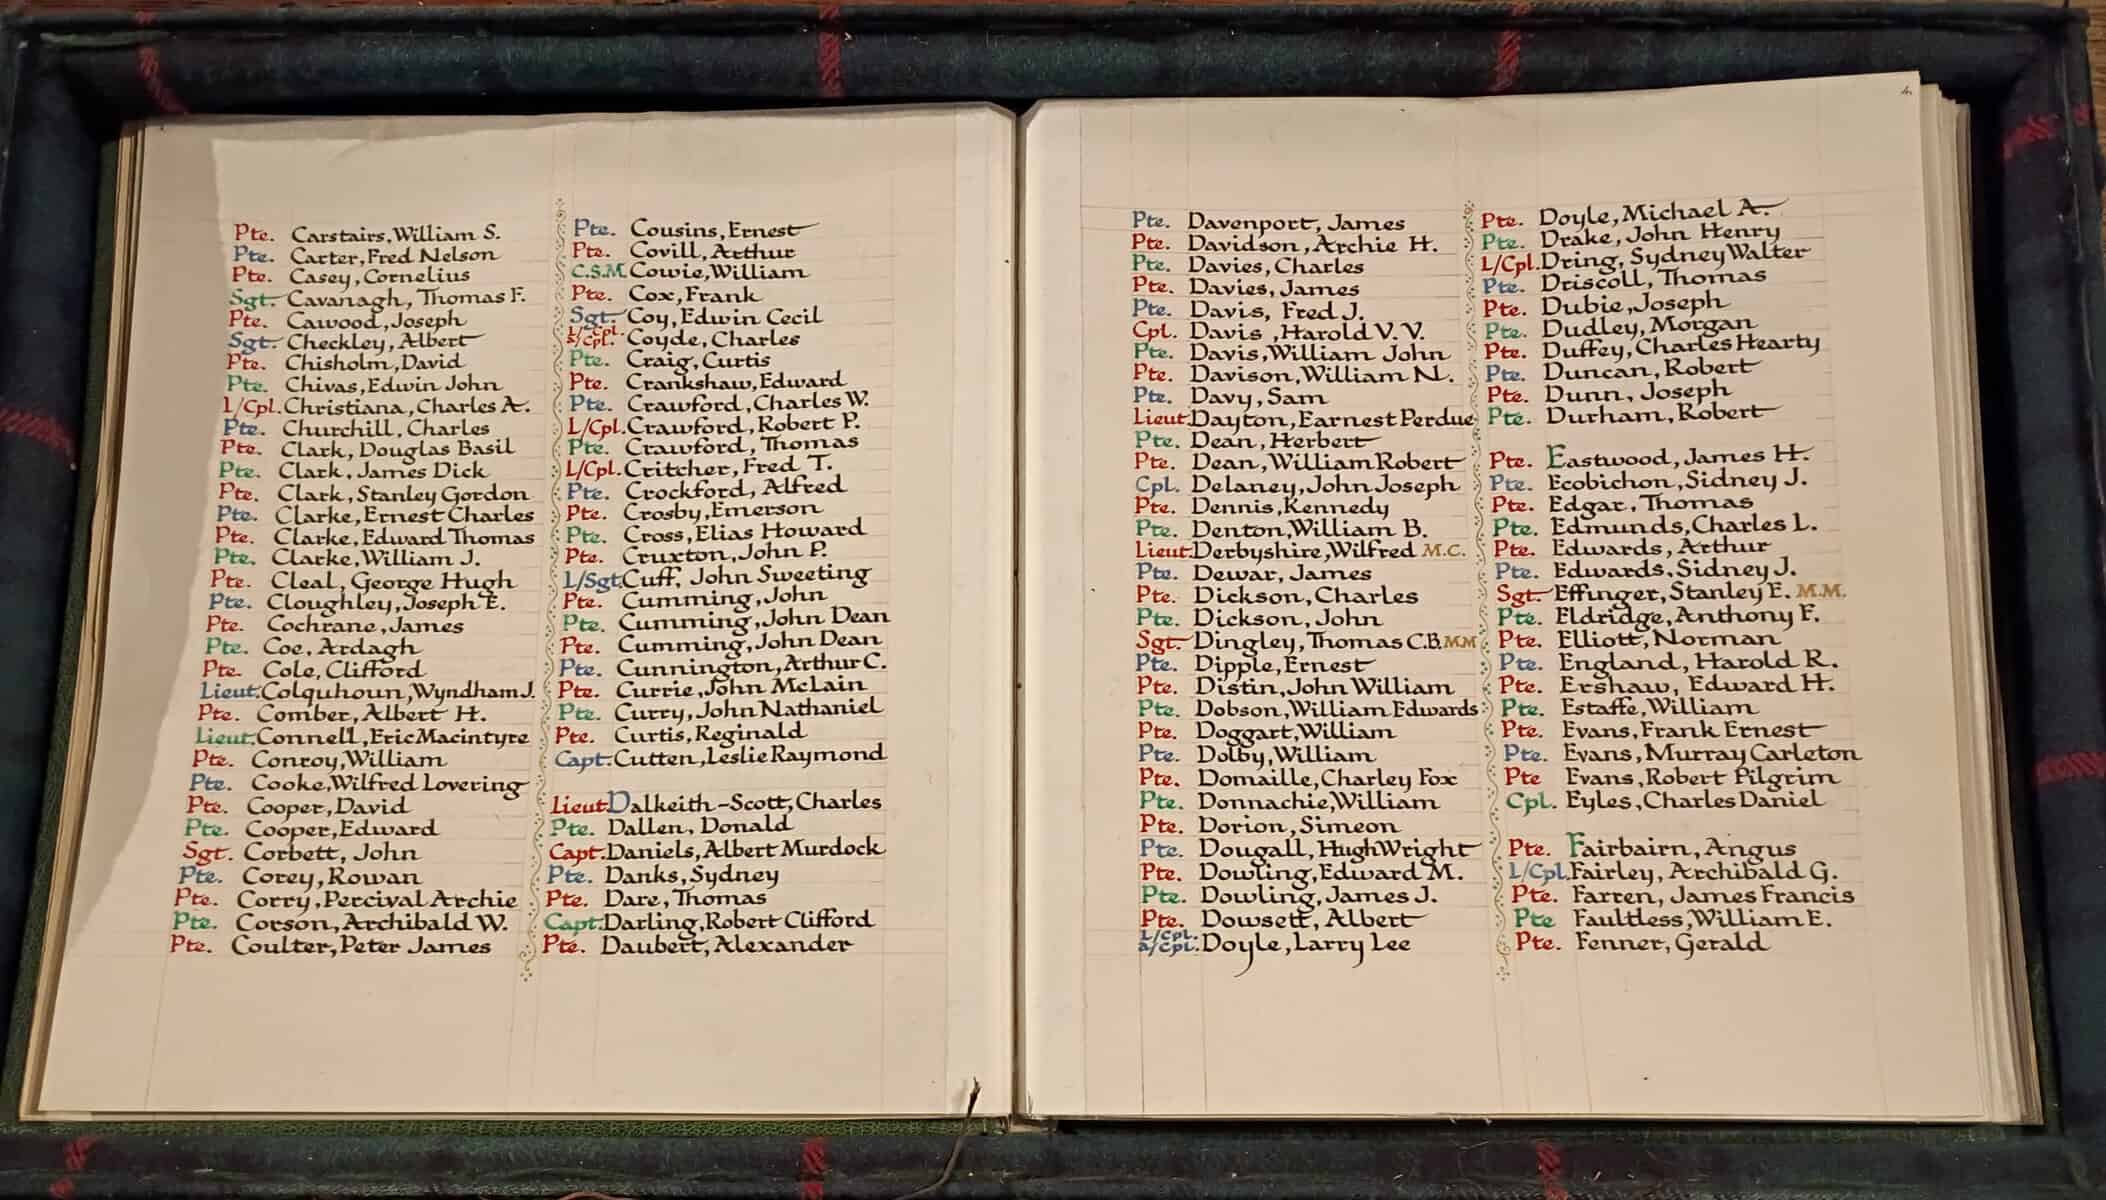 Pte. Carstairs, William S.
Pte. Carter, Fred Nelson
Pte. Casey, Cornelius
Sgt. Cavanagh, Thomas F.
Pte. Cawood, Joseph
Sgt. Checkley, Albert
Pte. Chisholm, David
Pte. Chivas, Edwin John
L/Cpl. Christiana, Charles A.
Pte. Churchill, Charles
Pte. Clark, Douglas Basil
Pte. Clark, James Dick
Pte. Clark, Stanley Gordon
Pte. Clarke, Ernest Charles
Pte. Clarke, Edward Thomas
Pte. Clarke, William J.
Pte. Cleal, George Hugh
Pte. Cloughley, Joseph E.
Pte. Cochrane, James
Pte. Coe, Ardagh
Pte. Cole, Clifford
Lieut. Colquhoun, Wyndham J.
Pte. Comber, Albert H.
Lieut. Connell, Eric Macintyre
Pte. Conroy, William
Pte. Cooke, Wilfred Lovering
Pte. Cooper, David
Pte. Cooper, Edward
Sgt. Corbett, John
Pte. Corey, Rowan
Pte. Corry, Percival Archie
Pte. Corson, Archibald W.
Pte. Coulter, Peter James
Pte. Cousins, Ernest
Pte. Covill, Arthur
C.S.M. Cowie, William
Pte. Cox, Frank
Sgt. Coy, Edwin Cecil
L/Cpl. a/Cpl. Coyde, Charles
Pte. Craig, Curtis
Pte. Crankshaw, Edward
Pte. Crawford, Charles W.
L/Cpl. Crawford, Robert P.
Pte. Crawford, Thomas
L/Cpl. Critcher, Fred T.
Pte. Crockford, Alfred
Pte. Crosby, Emerson
Pte. Cross, Elias Howard
Pte. Cruxton, John P.
L/Sgt. Cuff, John Sweeting
Pte. Cumming, John
Pte. Cumming, John Dean
Pte. Cumming, John Dean
Pte. Cunnington, Arthur C.
Pte. Currie, John McLain
Pte. Curry, John Nathaniel
Pte. Curtis, Reginald
Capt. Cutten, Leslie Raymond
Lieut. Dalkeith-Scott, Charles
Pte. Dallen, Donald
Capt. Daniels, Albert Murdock
Pte. Danks, Sydney
Pte. Dare, Thomas
Capt. Darling, Robert Clifford
Pte. Daubert, Alexander
4.
Pte. Davenport, James
Pte. Davidson, Archie H.
Pte. Davies, Charles
Pte. Davies, James
Pte. Davis, Fred J.
Cpl. Davis, Harold V. V.
Pte. Davis, William John
Pte. Davison, William N.
Pte. Davy, Sam
Lieut. Dayton, Earnest Perdue
Pte. Dean, Herbert
Pte. Dean, William Robert
Cpl. Delaney, John Joseph
Pte. Dennis, Kennedy
Pte. Denton, William B.
Lieut. Derbyshire, Wilfred M.C.
Pte. Dewar, James
Pte. Dickson, Charles
Pte. Dickson, John
Sgt. Dingley, Thomas C.B. MM
Pte. Dipple, Ernest
Pte. Distin, John William
Pte. Dobson, William Edwards
Pte. Doggart, William
Pte. Dolby, William
Pte. Domaille, Charley Fox
Pte. Donnachie, William
Pte. Dorion, Simeon
Pte. Dougall, Hugh Wright
Pte. Dowling, Edward M.
Pte. Dowling, James J.
Pte. Dowsett, Albert
L/Cpl. a/Cpl. Doyle, Larry Lee
Pte. Doyle, Michael A.
Pte. Drake, John Henry
L/Cpl. Dring, Sydney Walter
Pte. Driscoll, Thomas
Pte. Dubie, Joseph
Pte. Dudley, Morgan
Pte. Duffey, Charles Hearty
Pte. Duncan, Robert
Pte. Dunn, Joseph
Pte. Durham, Robert
Pte. Eastwood, James H.
Pte. Ecobichon, Sidney J.
Pte. Edgar, Thomas
Pte. Edmunds, Charles L.
Pte. Edwards, Arthur
Pte. Edwards, Sidney J.
Sgt. Effinger, Stanley E. M.M.
Pte. Eldridge, Anthony F.
Pte. Elliott, Norman
Pte. England, Harold R.
Pte. Ershaw, Edward H.
Pte. Estaffe, William
Pte. Evans, Frank Ernest
Pte. Evans, Murray Carleton
Pte Evans, Robert Pilgrim
Cpl. Eyles, Charles Daniel
Pte. Fairbairn, Angus
L/Cpl. Fairley, Archibald G.
Pte. Farren, James Francis
Pte Faultless, William E.
Pte. Fenner, Gerald